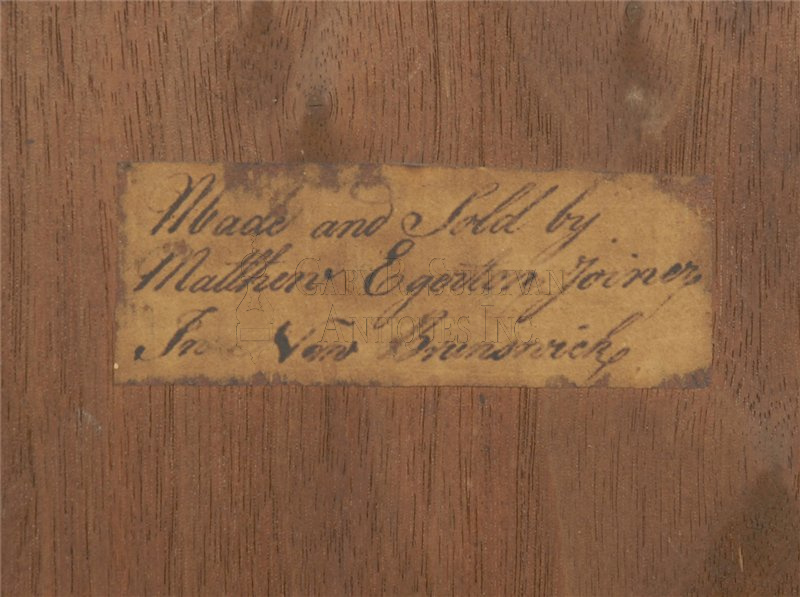 Made and Sold by
Matthew Egerton Joiner,
In New Brunswick,
GARY R. SULLIVAN
ANTIQUES INC.